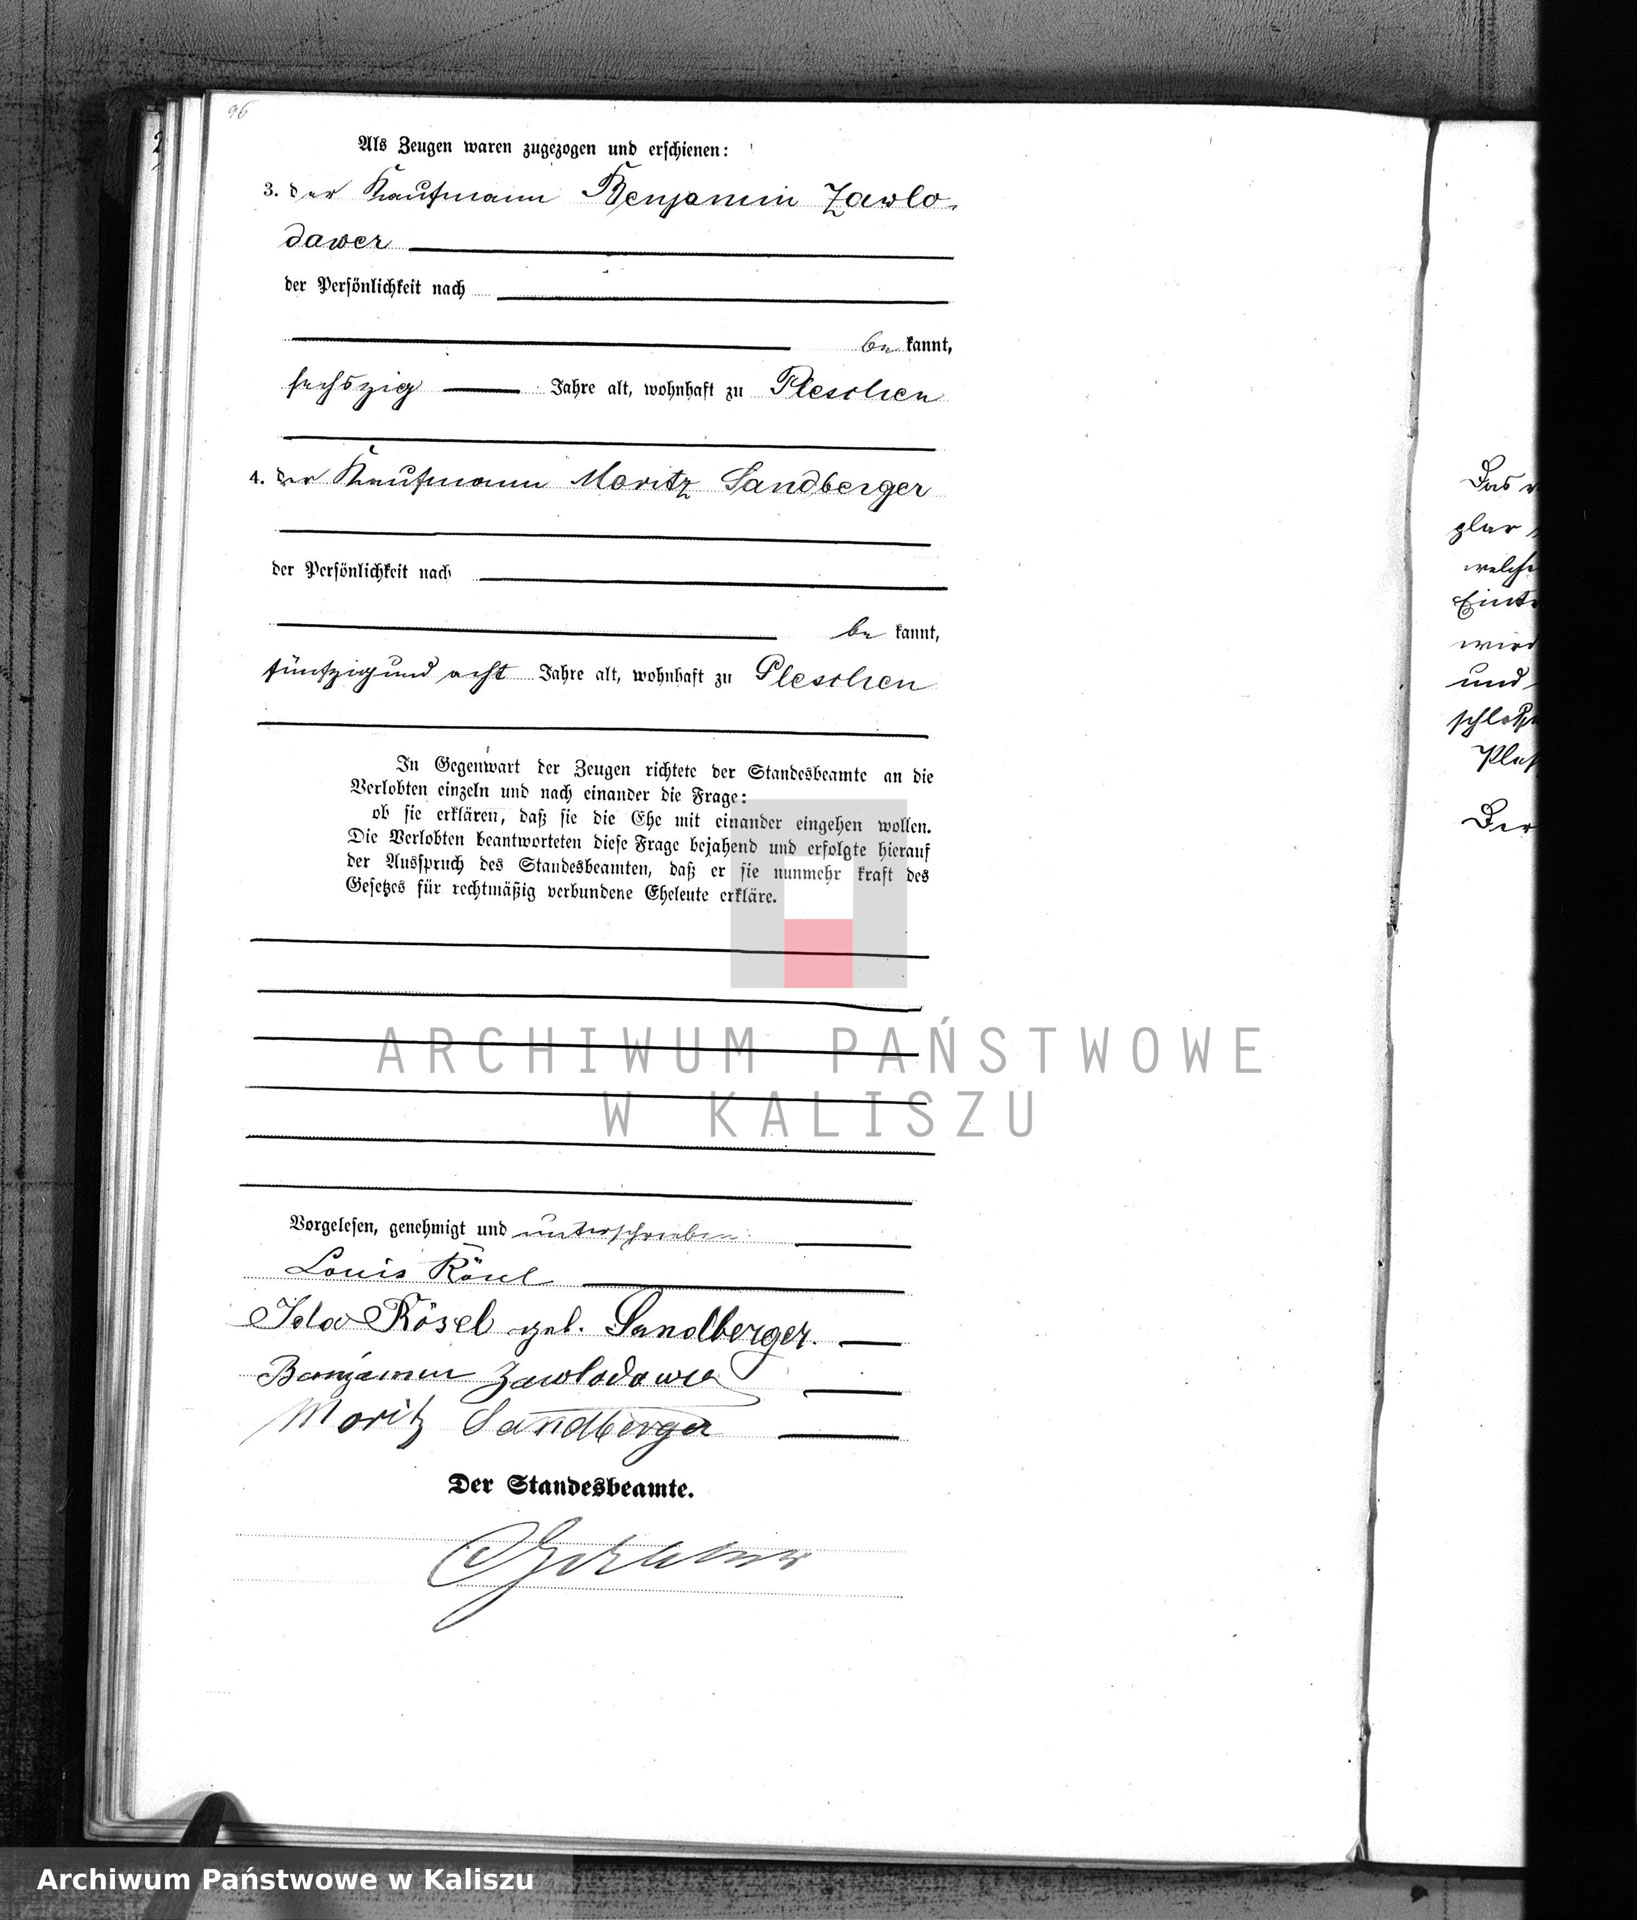 96
Als Zeugen waren zugezogen und erschienen:
3. der Kaufmann Benjamin Zawlo-
dawer
der Persönlichkeit nach
be kannt,
sechszig Jahre alt, wohnhaft zu Pleschen
4. der Kaufmann Moritz Sandberger
der Persönlichkeit nach
be kannt,
fünfzig und acht Jahre alt, wohnhaft zu Pleschen
In Gegenwart der Zeugen richtete der Standesbeamte an die
Verlobten einzeln und nach einander die Frage:
ob sie erklären, daß sie die Ehe mit einander eingehen wollen.
Die Verlobten beantworteten diese Frage bejahend und erfolgte hierauf
der Ausspruch des Standesbeamten, daß er sie nunmehr kraft des
Gesetzes für rechtmäßig verbundene Eheleute erkläre.
ARCHIWUM PAŃSTWOWE
W KALISZU
Vorgelesen, genehmigt und unterschrieben.
Louis Rösel
Ida Rösel geb. Sandberger.
Benjamin Zawlodawer
Moritz Sandberger
Der Standesbeamte.
Das
plar
welche
wird
und
Der
Archiwum Państwowe w Kaliszu